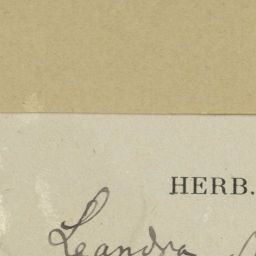 HERB.
Leandra